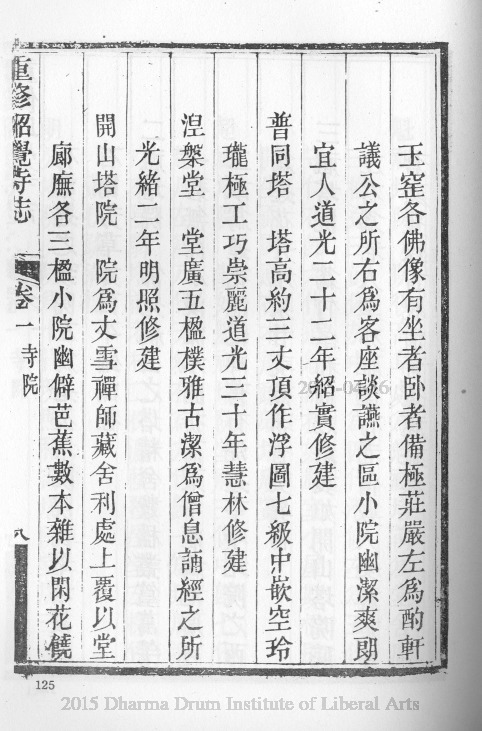 玉窐各佛像有坐者卧者備極莊嚴左爲酌軒
議公之所右爲客座談讌之區小院幽潔爽朗
宜人道光二十二年紹實修建
普同塔　塔高約三丈頂作浮圖七級中嵌空玲
瓏極工巧崇麗道光三十年慧林修建
涅槃堂　堂廣五楹樸雅古潔爲僧息誦經之所
光緒二年明照修建
開山塔院　院爲丈雪禪師藏舍利處上覆以堂
廊廡各三楹小院幽僻芭蕉數本雜以閑花饒
重修昭覺寺志　卷一　寺院　八
125
2015 Dharma Drum Institute of Liberal Arts